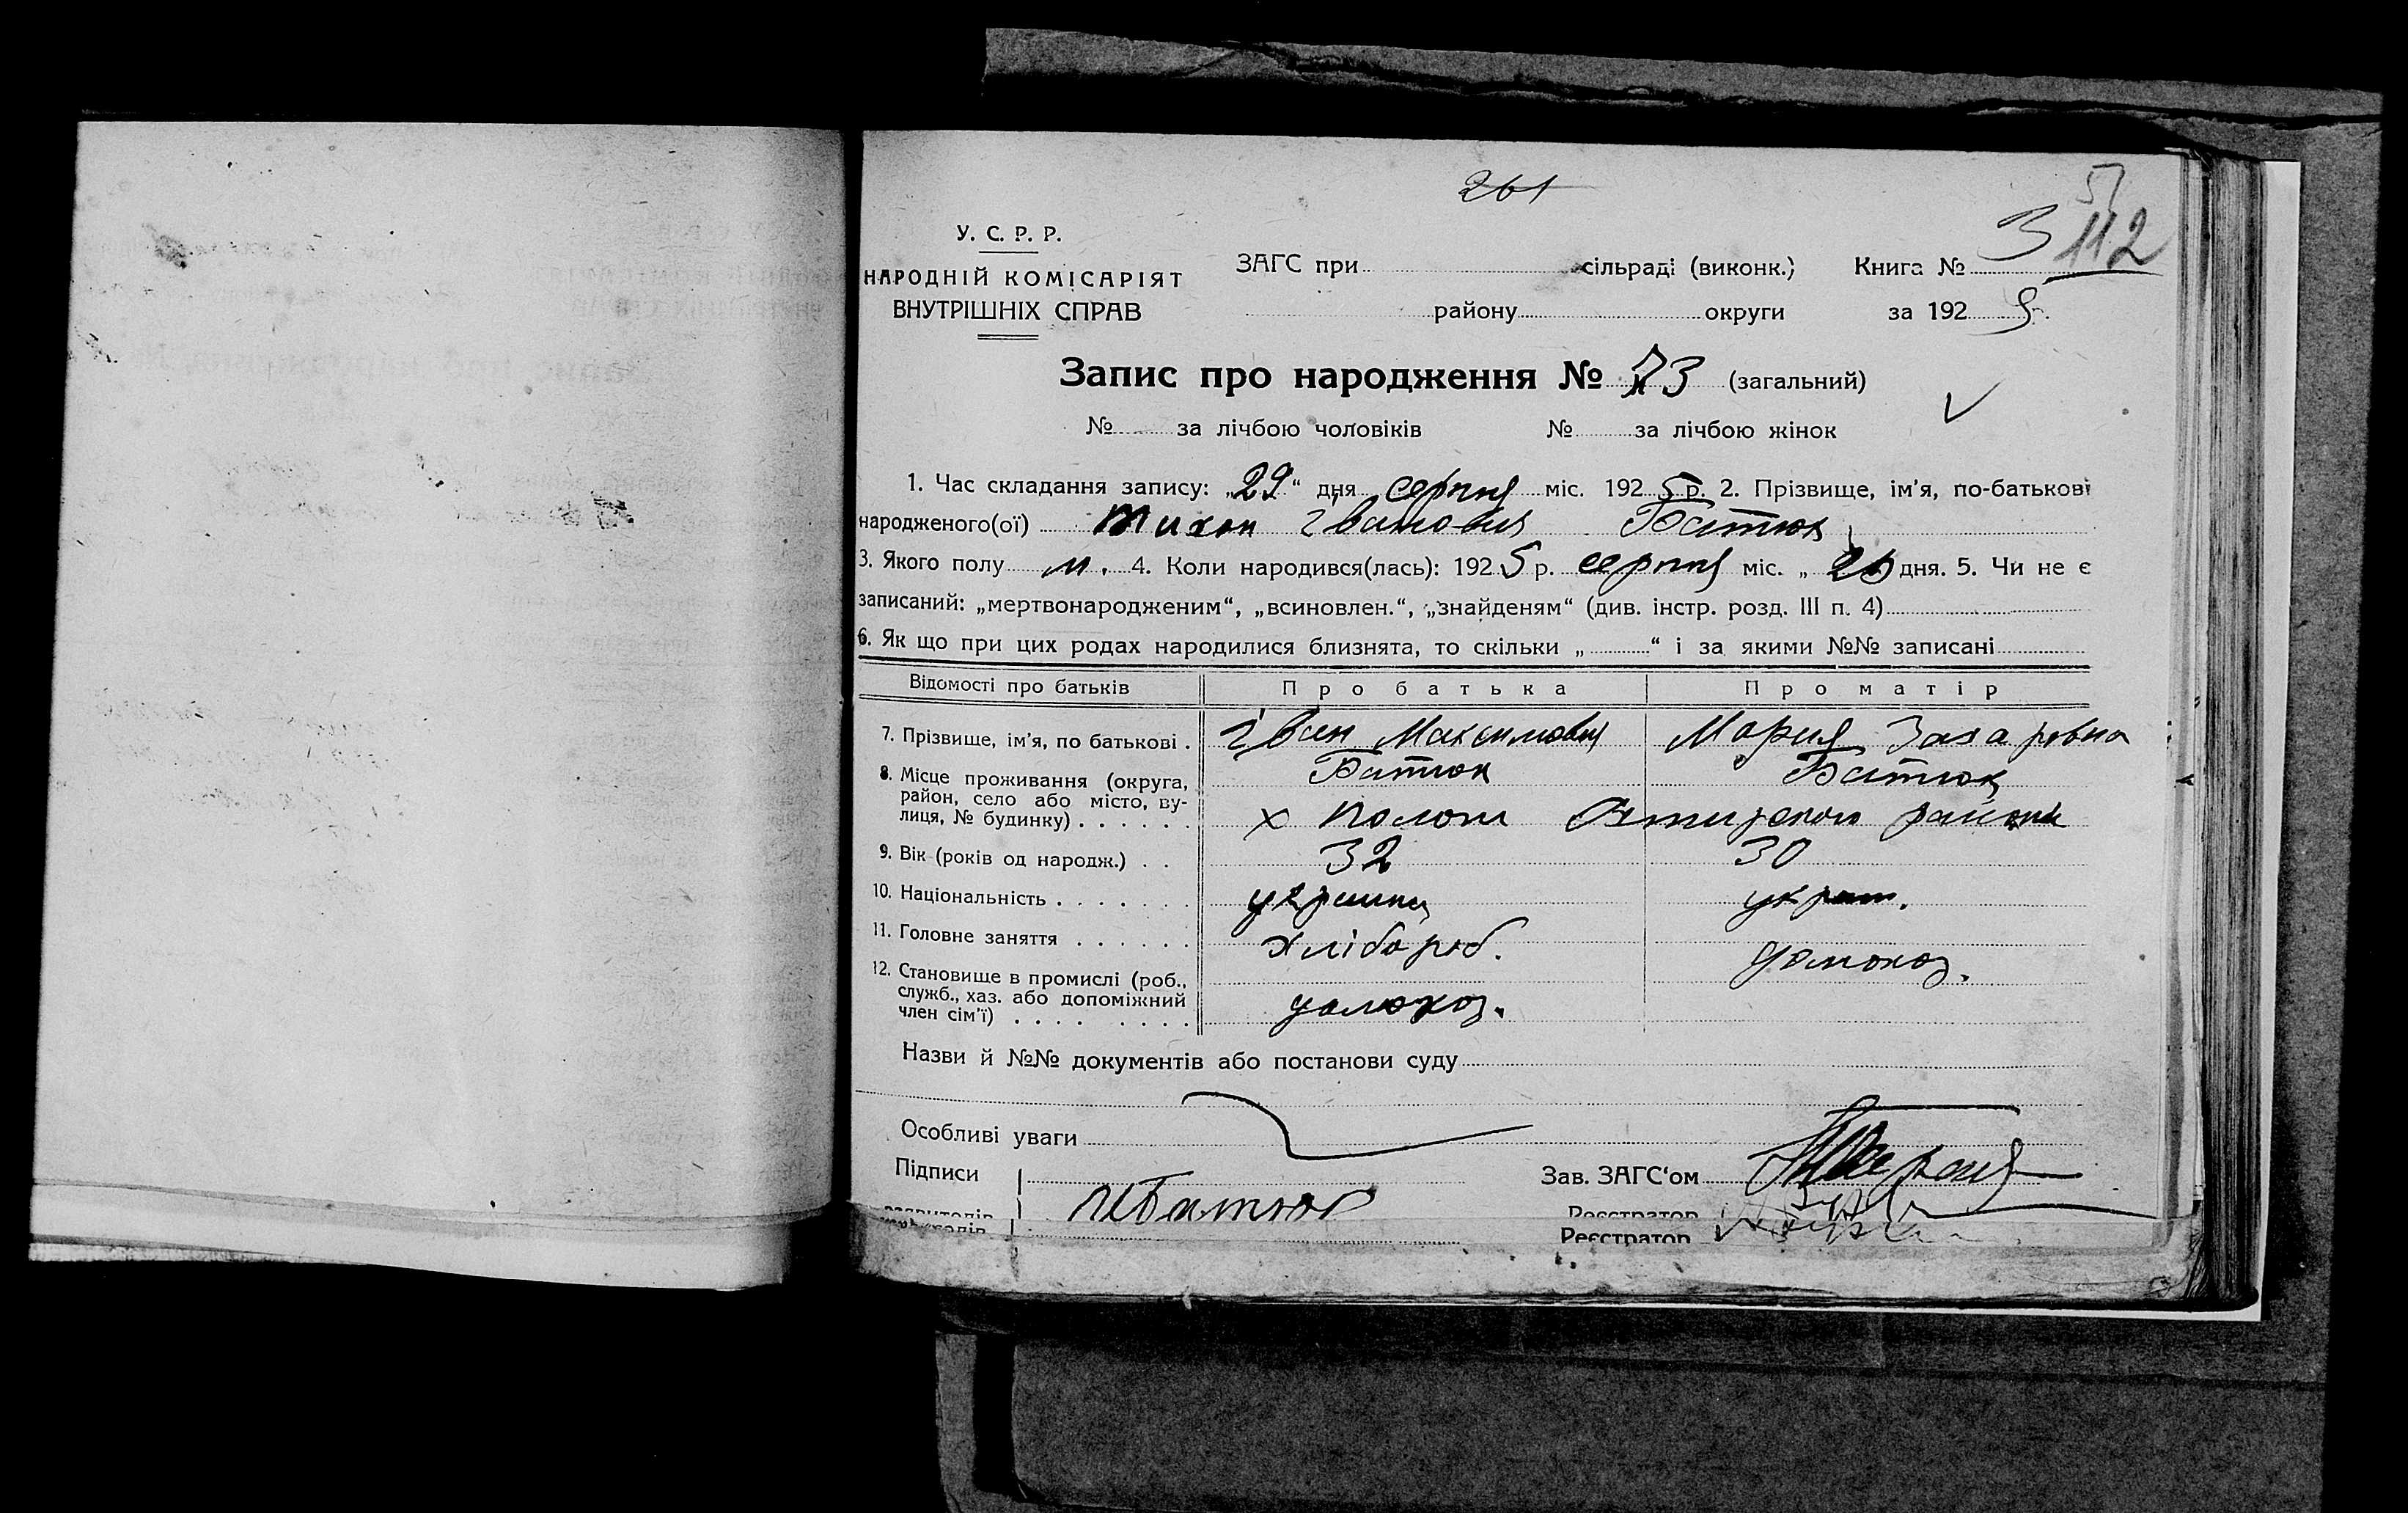 261
57
У. С. Р. Р.
3 112
НАРОДНІЙ КОМІСАРІЯТ
ВНУТРІШНІХ СПРАВ
ЗАГС при сільраді (виконк.) Книга №
району округи за 192 5
Запис про народження № 73 (загальний)
№ за лічбою чоловіків № за лічбою жінок
1. Час складання запису: „29“ дня серпня міс. 192 5 р. 2. Прізвище, ім'я, по-батькові
народженого(ої) Тихон Іванович Батюк
3. Якого полу м. 4. Коли народився(лась): 192 5 р. серпня міс. „ 26 дня. 5. Чи не є
записаний: „мертвонародженим“, „всиновлен.“, „знайденям“ (див. інстр. розд. III п. 4)
6. Як що при цих родах народилися близнята, то скільки „ “ і за якими №№ записані
Відомості про батьків Про батька Про матір
7. Прізвище, ім'я, по батькові . Іван Максимович Мария Захаровна
Батюк Батюк
8. Місце проживання (округа,
район, село або місто, ву-
лиця, № будинку) . . . . . . х район
9. Вік (років од народж.) . . 32 30
10. Національність . . . . . . . украинец украин.
11. Головне заняття . . . . . . хлібороб. домохоз.
12. Становище в промислі (роб.,
служб., хаз. або допоміжний
член сім'ї) . . . . . . . . домохоз.
Назви й №№ документів або постанови суду
Особливі уваги
Підписи Зав. ЗАГС'ом
Батюк Реєстратор
Реєстратор